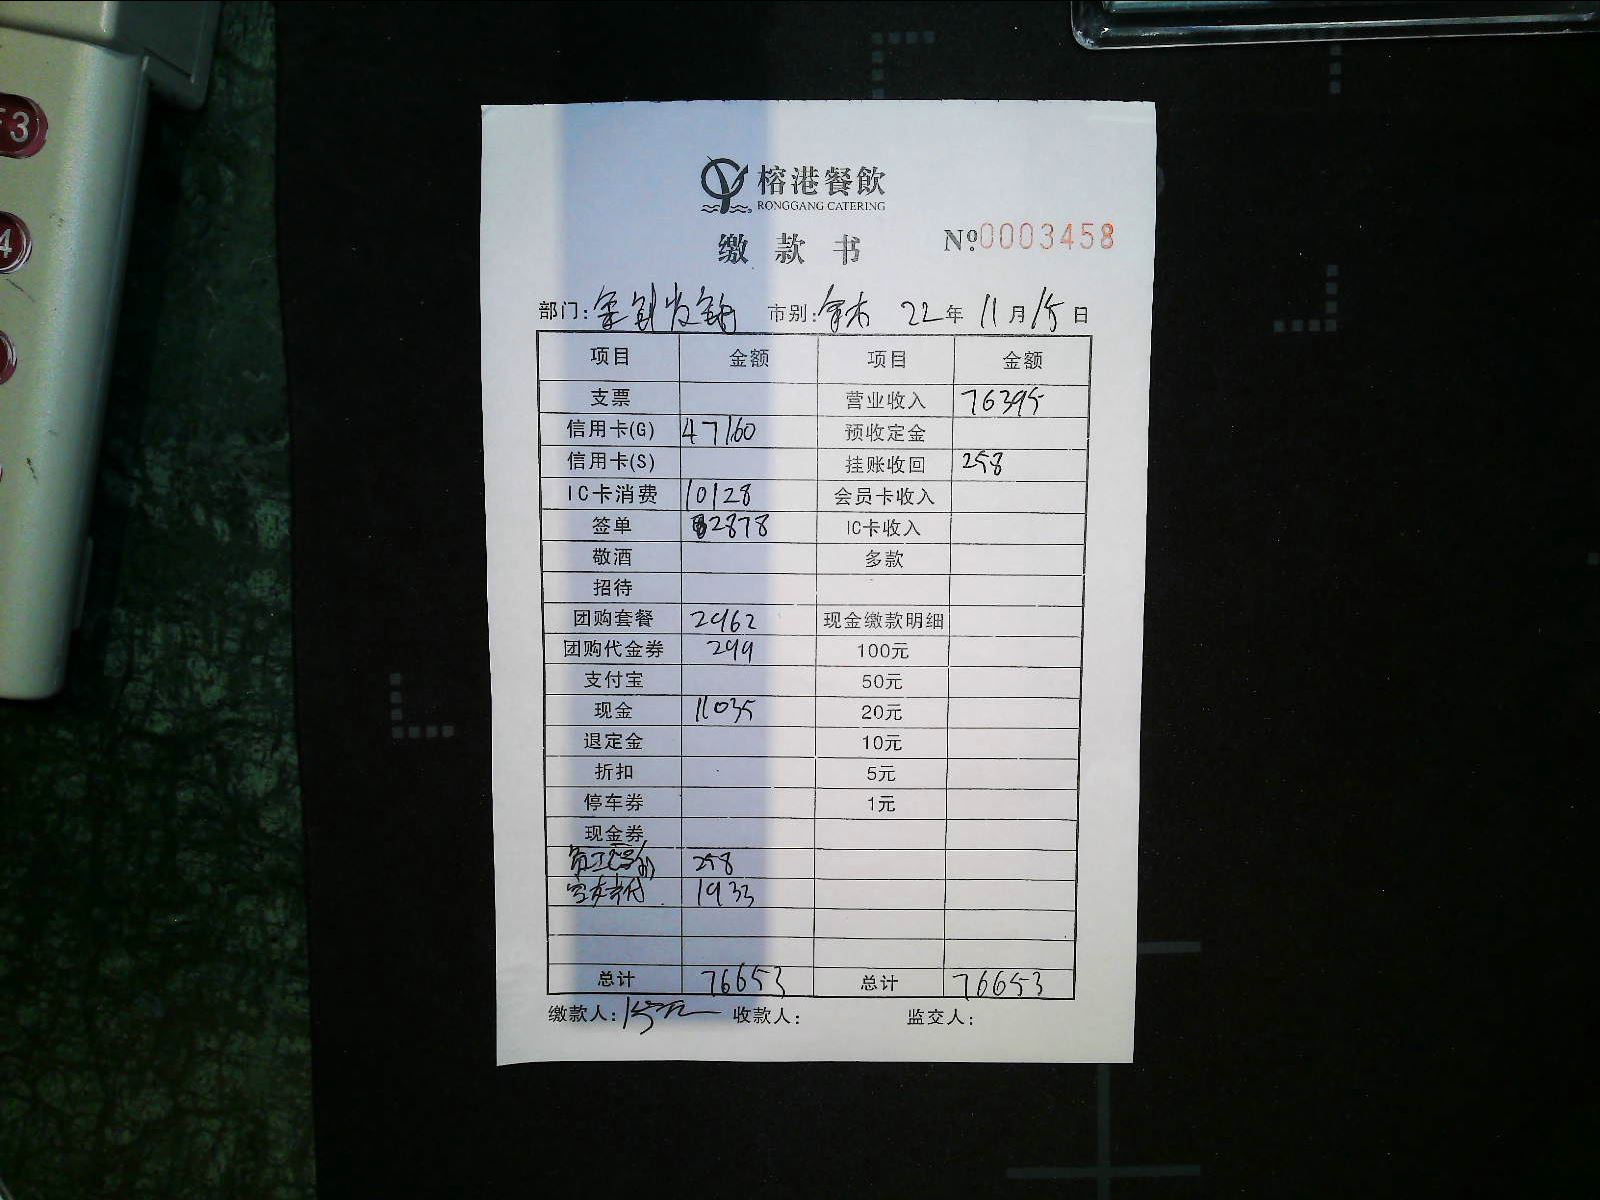 F3
4
榕港餐飲
RONGGANG CATERING
缴款书
Nº0003458
部门: 市别: 22年11月15日
项目 金额 项目 金额
支票 营业收入 76395
信用卡(G) 47160 预收定金
信用卡(S) 挂账收回 258
IC卡消费 10128 会员卡收入
签单 2878 IC卡收入
敬酒 多款
招待
团购套餐 2962 现金缴款明细
团购代金券 299 100元
支付宝 50元
现金 11035 20元
退定金 10元
折扣 5元
停车券 1元
现金券
258
1933
总计 76653 总计 76653
缴款人: 收款人: 监交人: